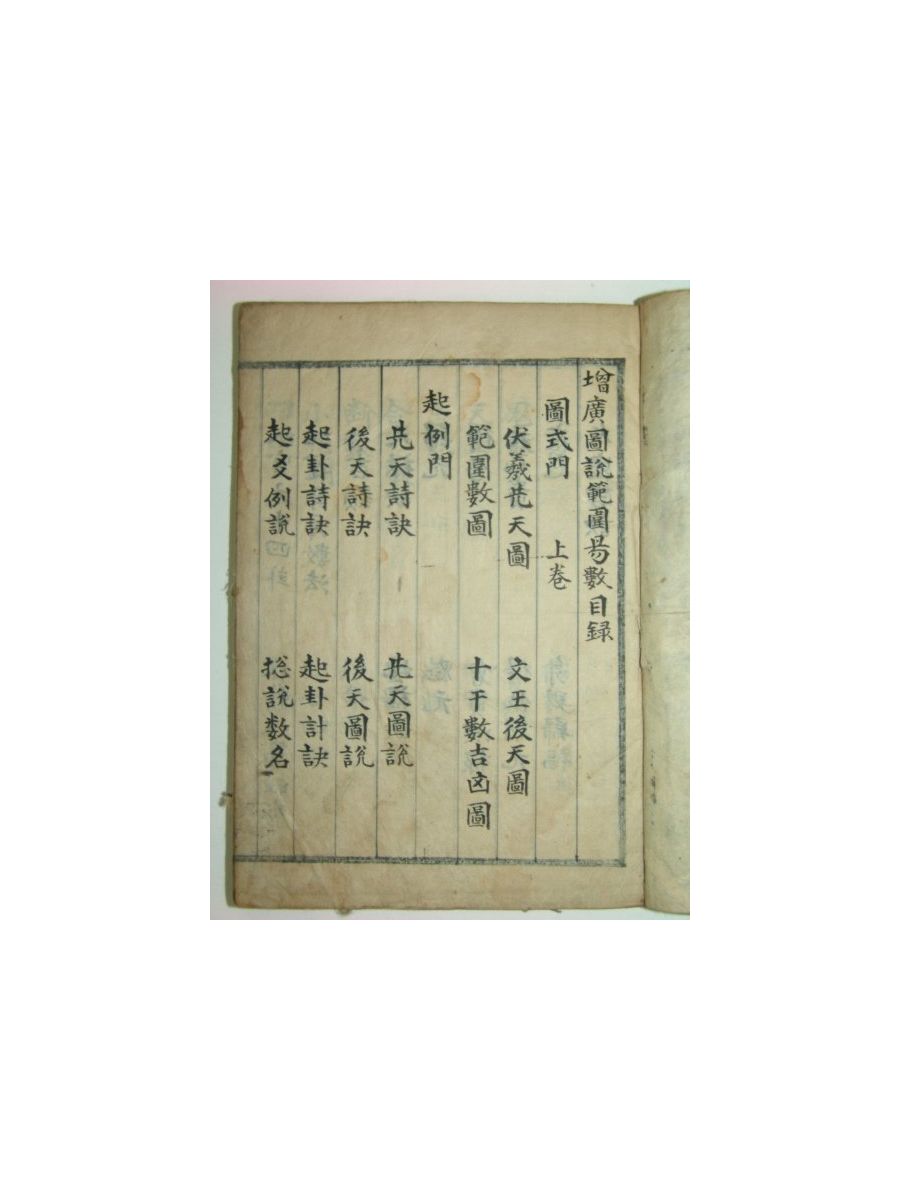 增廣圖説範圍易數目録
圖式門 上卷
伏羲先天圖 文王後天圖
範圍數圖 十干數吉凶圖
起例門
先天詩訣 先天圖説
後天詩訣 後天圖説
起卦詩訣 起卦計訣
起爻例説 揔説数名